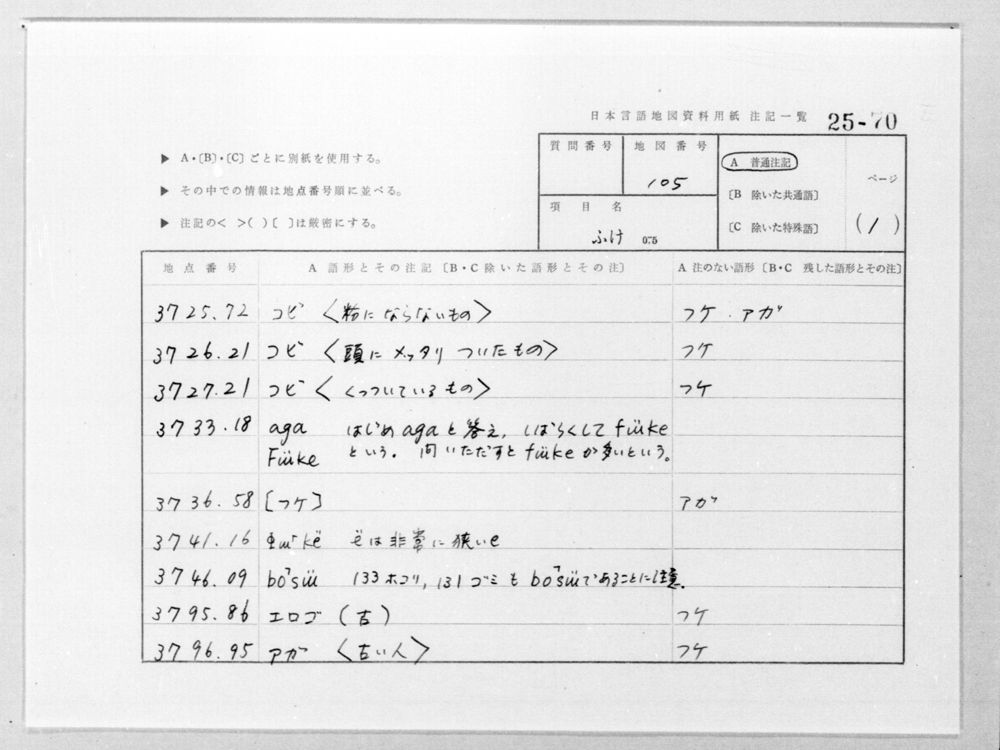 日本言語地図資料用紙 注記一覧 25-70
▶ A・〔B〕・〔C〕ごとに別紙を使用する。
▶ その中での情報は地点番号順に並べる。
▶ 注記の< >( )〔 〕は厳密にする。
質問番号 地図番号
105
項目名
ふけ 075
A 普通注記
〔B 除いた共通語〕
〔C 除いた特殊語〕
ページ
(1)
地点番号 A 語形とその注記〔B・C 除いた語形とその注〕 A 注のない語形〔B・C 残した語形とその注〕
3725.72 コビ 〈粉にならないもの〉 フケ . アガ
3726.21 コビ 〈頭に メッタリ ついたもの〉 フケ
3727.21 コビ 〈くっついているもの〉 フケ
3733.18 aga はじめ aga と答え, しばらくして füke
Füke という. 問いただすと füke が多いという。
3736.58 [フケ] アガ
3741.16 ëは非常に狭いe
3746.09 bo˥sïï 133 ホコリ, 131 ゴミも bo˥sïïであることに注意.
3795.86 エロゴ (古) フケ
3796.95 アガ 〈古い人〉 フケ